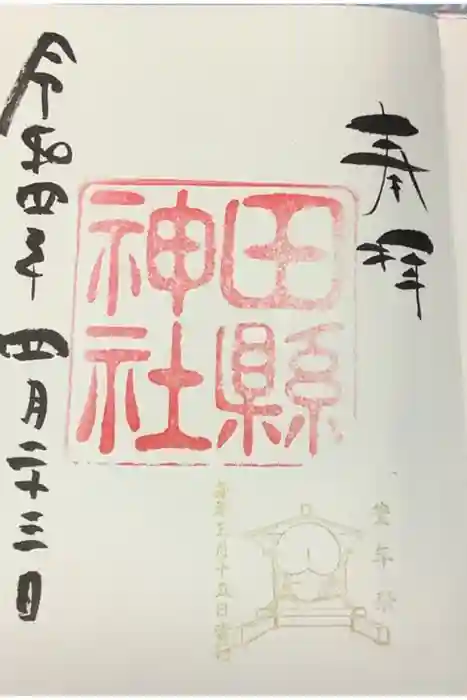 奉拝
田縣
神社
豊年祭
毎年三月十五日斎行
令和四年四月二十三日